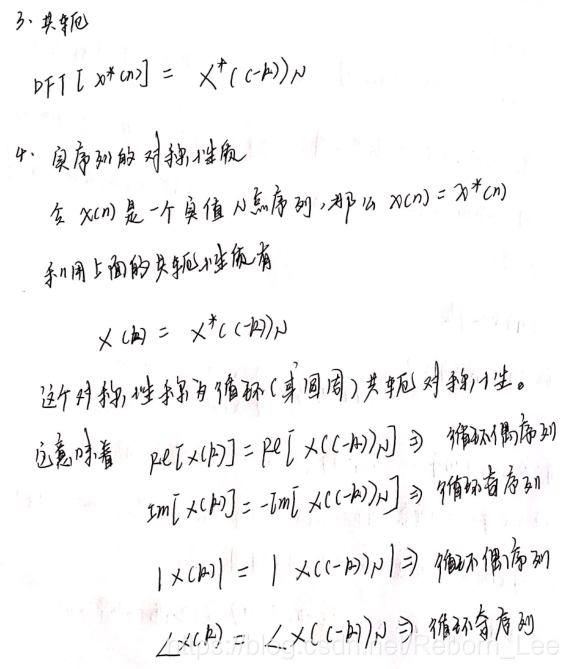 3. 共轭
DFT[x*(n)] = X*((-k))N
4. 实序列的对称性质
令 x(n) 是一个实值 N点序列,那么 x(n) = x*(n)
利用上面的共轭性质有
X(k) = X*((-k))N
这个对称性称为循环(或圆周)共轭对称性。
这意味着 Re[X(k)] = Re[X((-k))N] ⇒ 循环偶序列
Im[X(k)] = -Im[X((-k))N] ⇒ 循环奇序列
|X(k)| = |X((-k))N| ⇒ 循环偶序列
∠X(k) = ∠X((-k))N ⇒ 循环奇序列
https://blog.csdn.net/Reborn_Lee